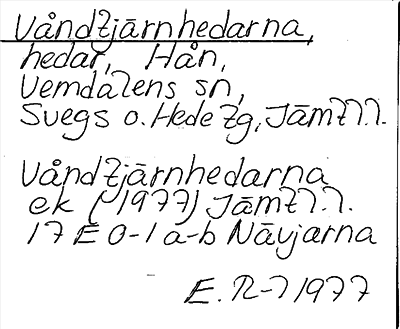 Våndtjärnhedarna,
hedar, Hån,
Vemdalens sn,
Svegs o. Hede tg, Jämtl.l.
Våndtjärnhedarna
ek (1977) Jämtl.l.
17 E 0-1 a-b Nävjarna
E. R-l 1977